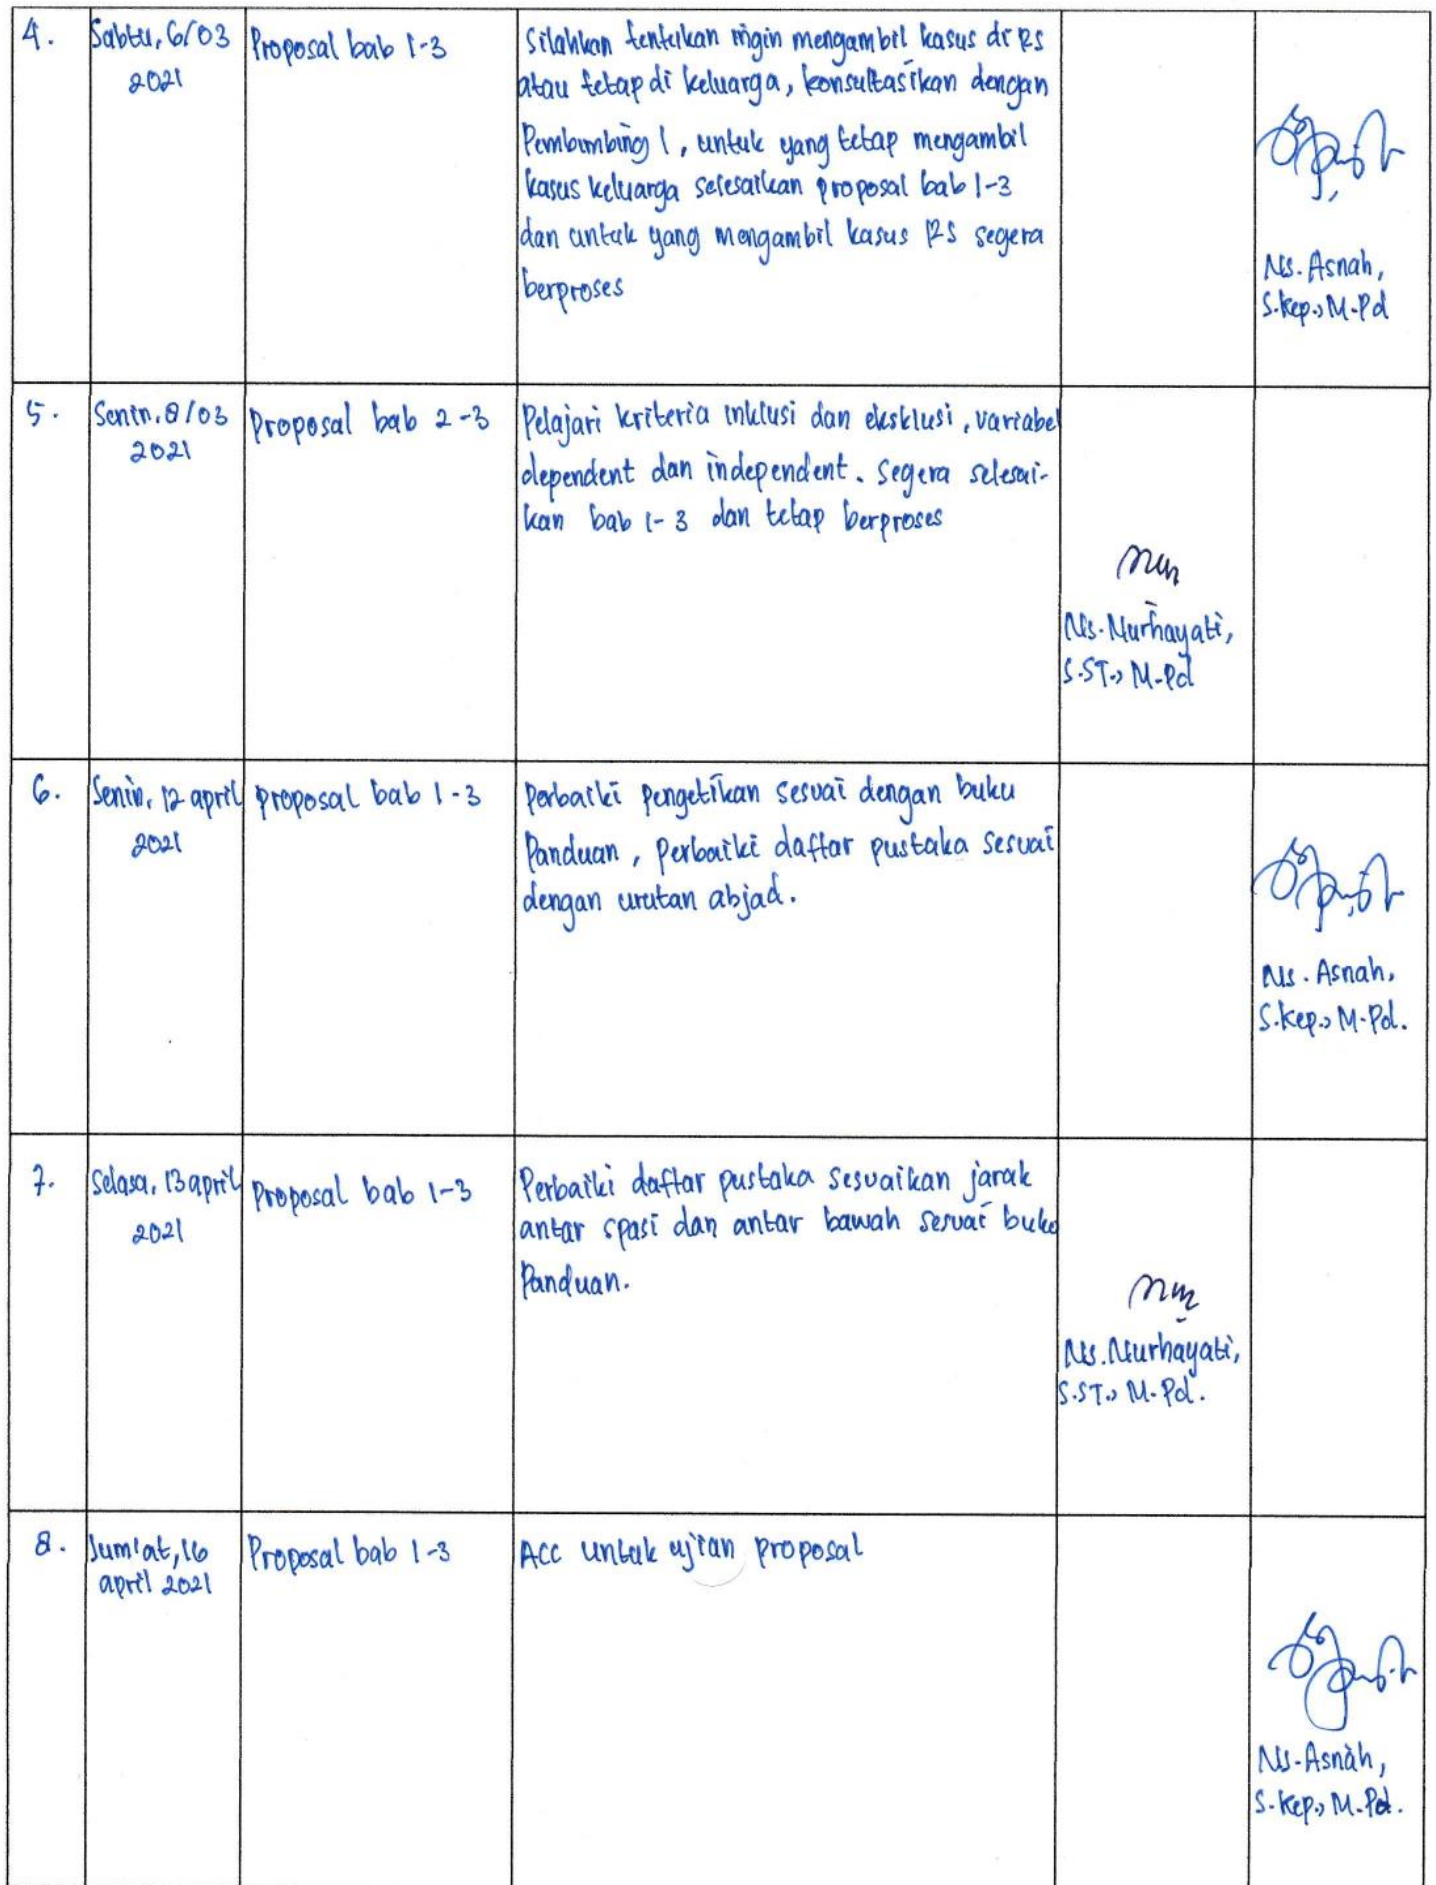 4.
Sabtu, 6/03
2021
Proposal bab 1-3
Silahkan tentukan ingin mengambil kasus di RS
atau tetap di keluarga, konsultasikan dengan
Pembimbing 1, untuk yang tetap mengambil
kasus keluarga selesaikan proposal bab 1-3
dan untuk yang mengambil kasus RS segera
berproses
Ns. Asnah,
S.kep., M.Pd
5.
Senin, 8/03
2021
Proposal bab 2-3
Pelajari kriteria inklusi dan eksklusi, variabel
dependent dan independent. Segera selesai-
kan bab 1-3 dan tetap berproses
Ns. Nurhayati,
S.ST., M.Pd
6.
Senin, 12 april
2021
proposal bab 1-3
Perbaiki pengetikan sesuai dengan buku
Panduan, perbaiki daftar pustaka sesuai
dengan urutan abjad.
Ns. Asnah,
S.kep., M.Pd.
7.
Selasa, 13 april
2021
Proposal bab 1-3
Perbaiki daftar pustaka sesuaikan jarak
antar spasi dan antar bawah sesuai buku
Panduan.
Ns. Nurhayati,
S.ST., M.Pd.
8.
Jum'at, 16
april 2021
Proposal bab 1-3
ACC untuk ujian proposal
Ns. Asnah,
S.Kep., M.Pd.